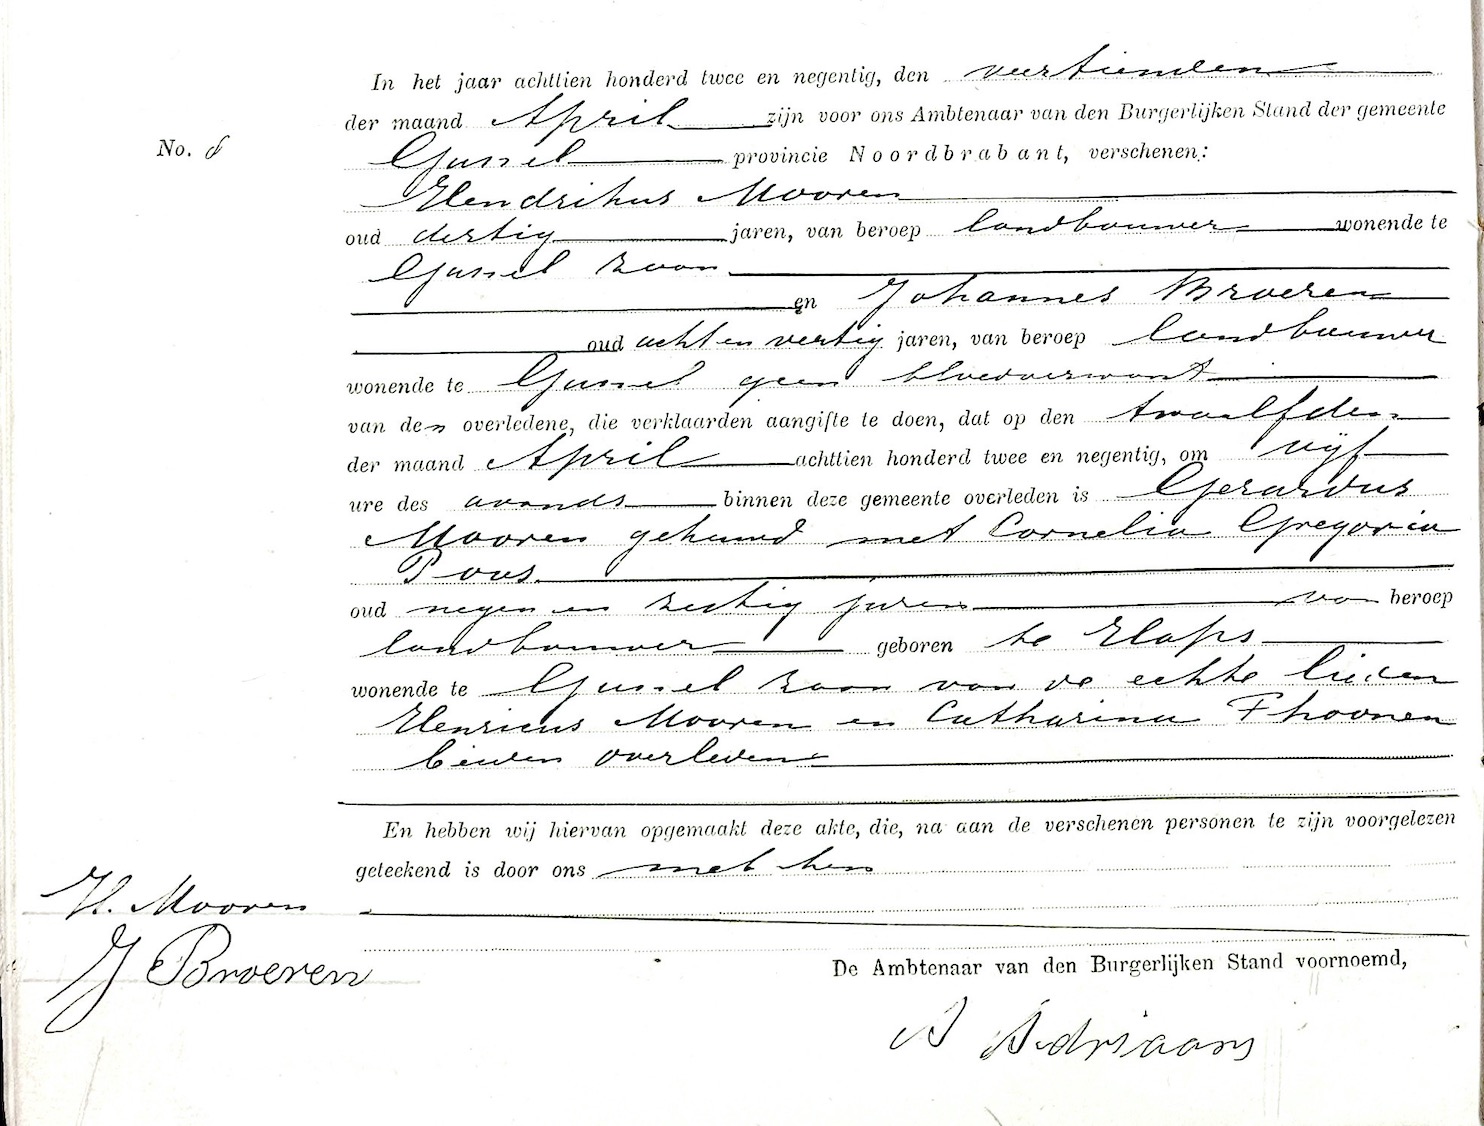 In het jaar achttien honderd twee en negentig, den veertienden
der maand April zijn voor ons Ambtenaar van den Burgerlijken Stand der gemeente
No. 8
Gassel provincie Noordbrabant, verschenen:
Hendrikus Mooren
oud dertig jaren, van beroep landbouwer wonende te
Gassel zoon
en Johannes Broeren
oud acht en veertig jaren, van beroep landbouwer
wonende te Gassel geen bloedverwant
van den overledene, die verklaarden aangifte te doen, dat op den twaalfden
der maand April achttien honderd twee en negentig, om vijf
ure des avonds binnen deze gemeente overleden is Gerardus
Mooren gehuwd met Cornelia Gregoria
oud negen en zestig jaren van beroep
landbouwer geboren te Haps
wonende te Gassel zoon van de echte lieden
Henricus Mooren en Catharina Thoonen
beiden overleden
En hebben wij hiervan opgemaakt deze akte, die, na aan de verschenen personen te zijn voorgelezen
geteekend is door ons met hen
H. Mooren
J Broeren
De Ambtenaar van den Burgerlijken Stand voornoemd,
A Adriaans